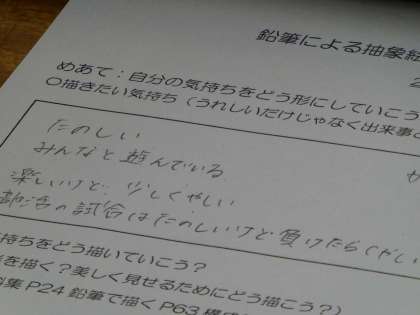 鉛筆による抽象絵
めあて：自分の気持ちをどう形にしていこう
○描きたい気持ち（うれしいだけじゃなく出来事
たのしい
みんなと遊んでいる
楽しいけど、少しくやしい
部活の試合はたのしいけど負けたらくやしい
持ちをどう描いていこう？
を描く？美しく見せるためにどう描こう？）
集P24 鉛筆で描くP63